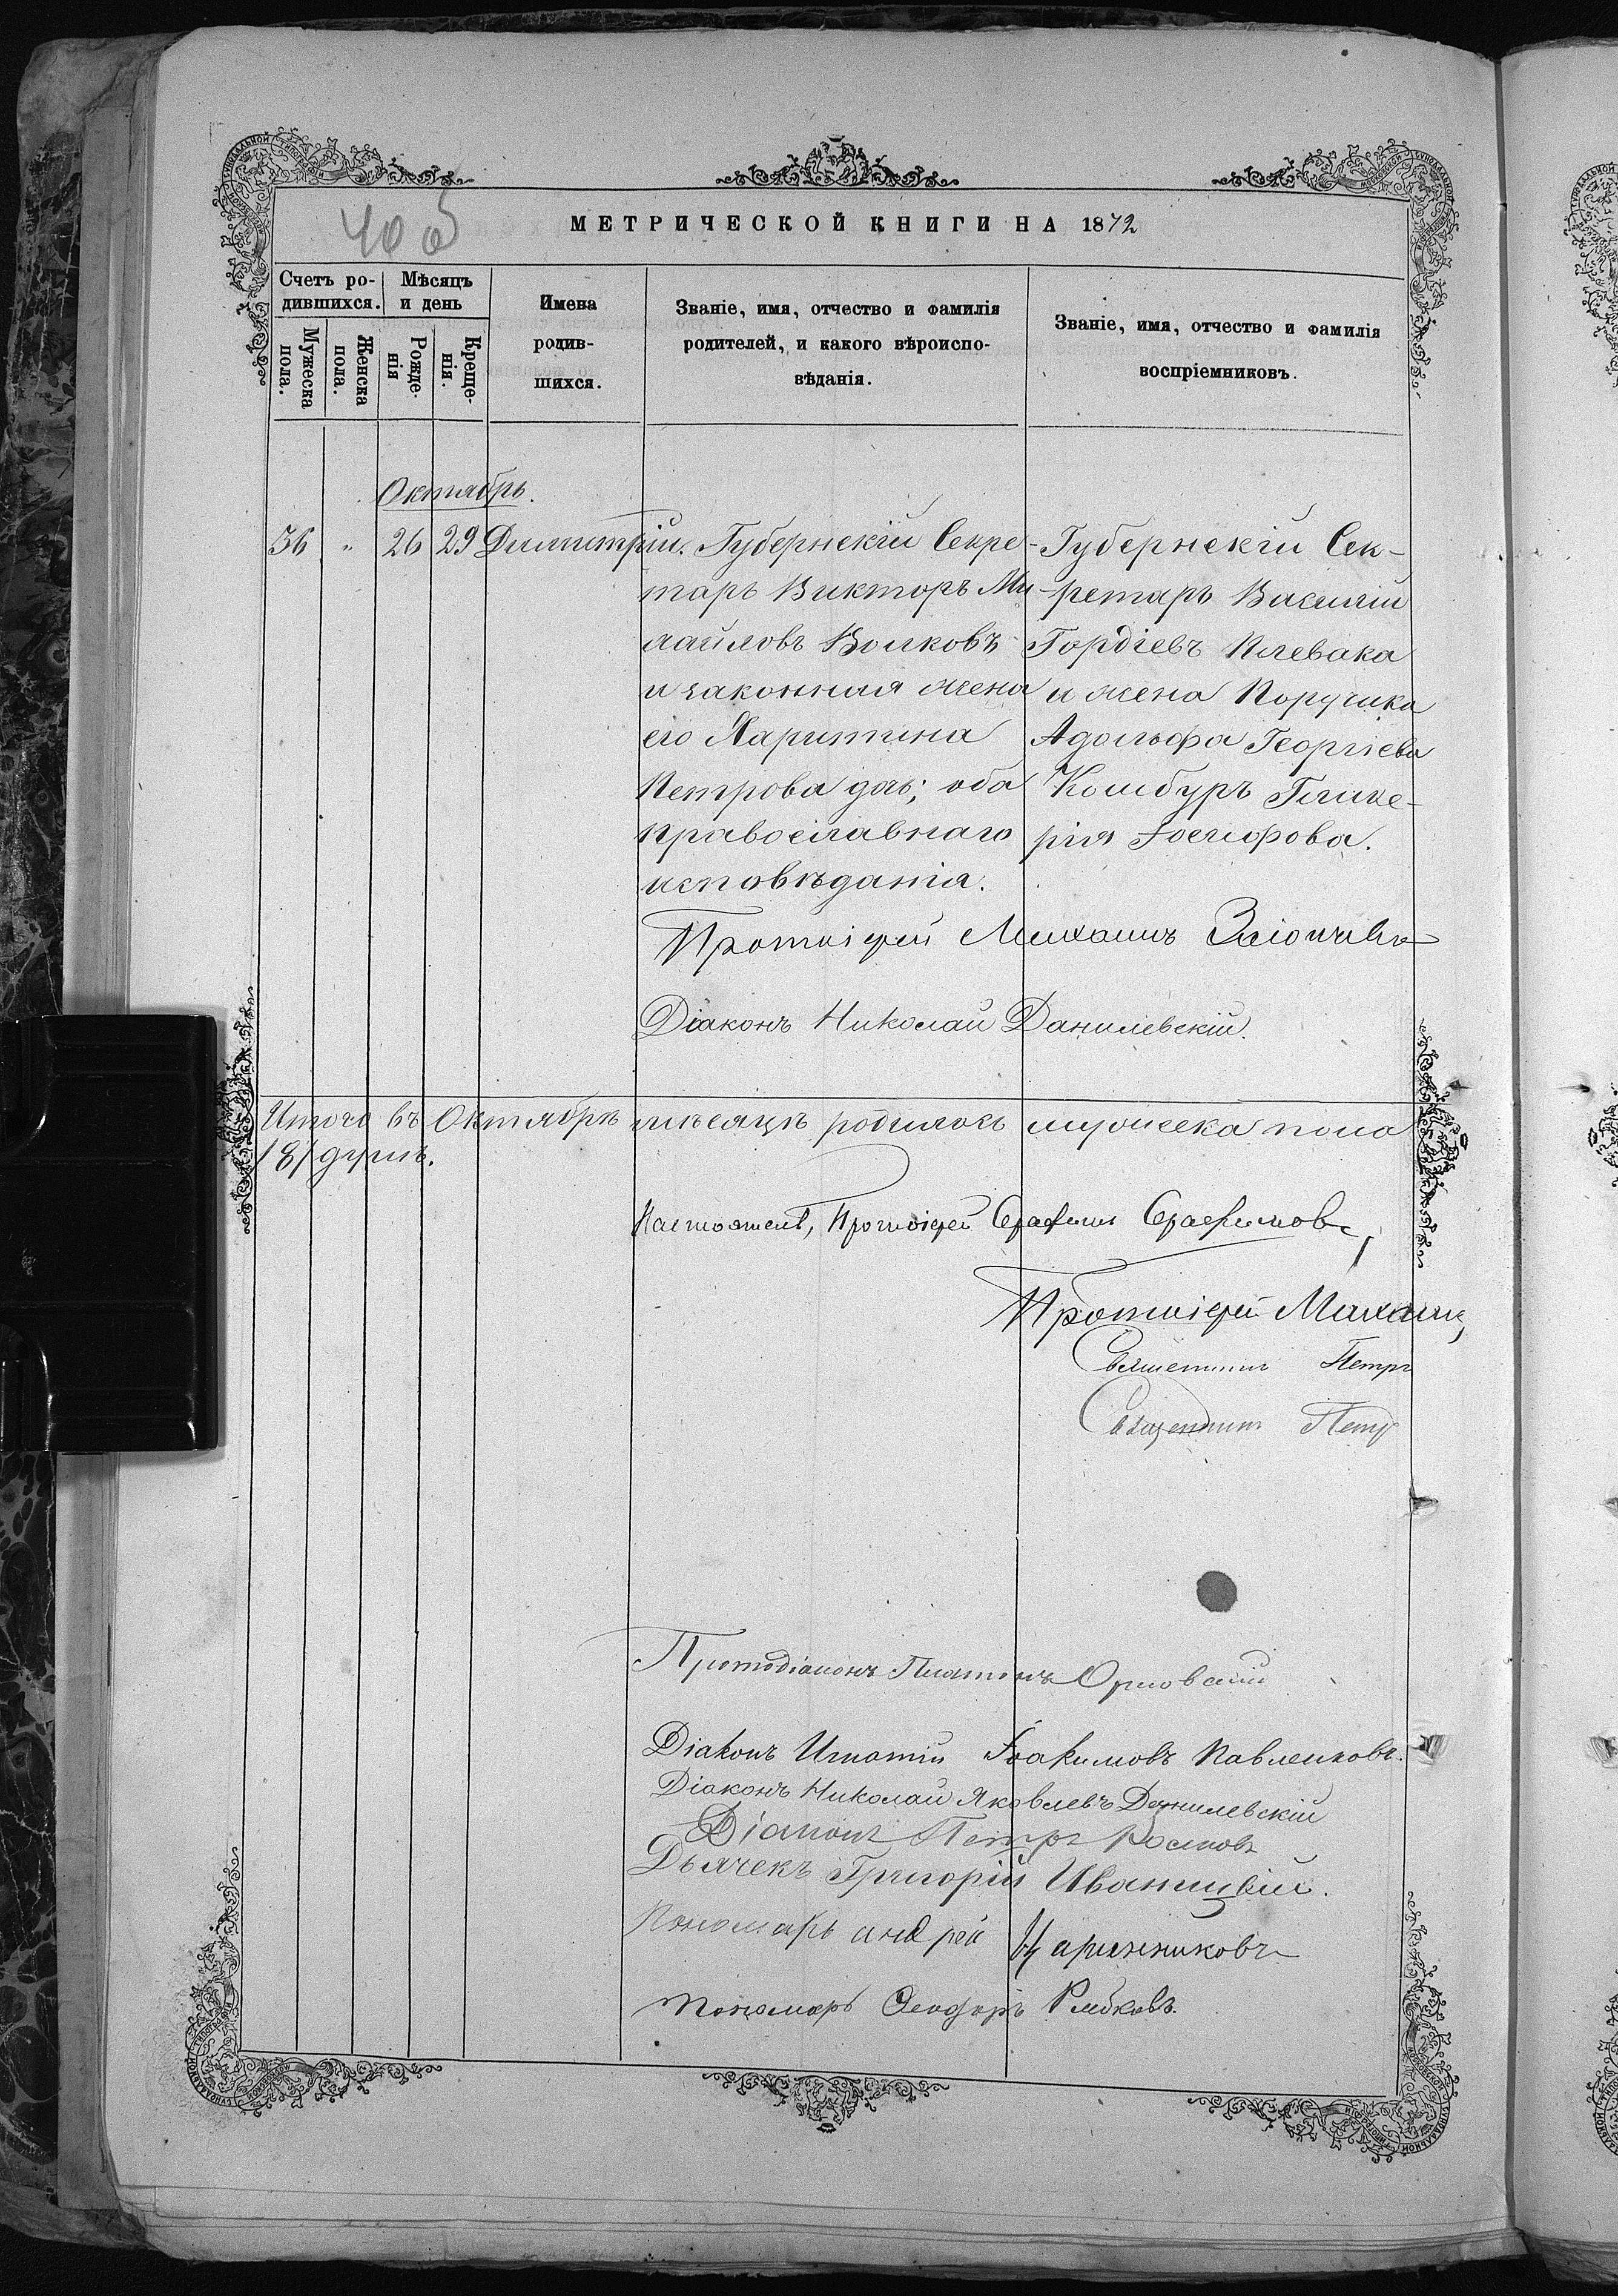 40 об
МЕТРИЧЕСКОЙ КНИГИ НА 1872
Счетъ ро-
дившихся.
Мужеска пола.
Женска пола.
Мѣсяцъ
и день
Рожде-
нія
Креще-
нія.
Имена
родив-
шихся.
Званіе, имя, отчество и фамилія
родителей, и какого вѣроиспо-
вѣданія.
Званіе, имя, отчество и фамилія
воспріемниковъ.
Октябрь.
56 " 26 29 Димитрій.
Губернскій Секре-
тарь Викторъ Ми
хайловъ Волковъ
и законная жена
его Харитина
Петрова дочь; оба
православнаго
исповѣданія.
Губернскій Сек-
-ретарь Василій
Гордіевъ Плевака
и жена Поручика
Адольфа Георгіева
Комбуръ Глике-
рія Іосифова.
Протоіерей Михаилъ
Діаконъ Николай Данилевскій.
Итого въ Октябрѣ мѣсяцѣ родилось мужеска пола
/8/ душъ.
Настоятель, Протоіерей Серафимъ Серафимовъ,
Протоіерей Михаилъ
Священникъ Петръ
Священникъ Петр
Протодіаконъ Платонъ Орловскій
Діаконъ Игнатій Іоакимовъ Павленковъ.
Діаконъ Николай Яковлевъ Данилевскій
Діаконъ Петръ
Дьячекъ Григорій Иваницкій.
Пономарь Андрей Царинниковъ
Пономарь Ѳеодоръ Рыбковъ.